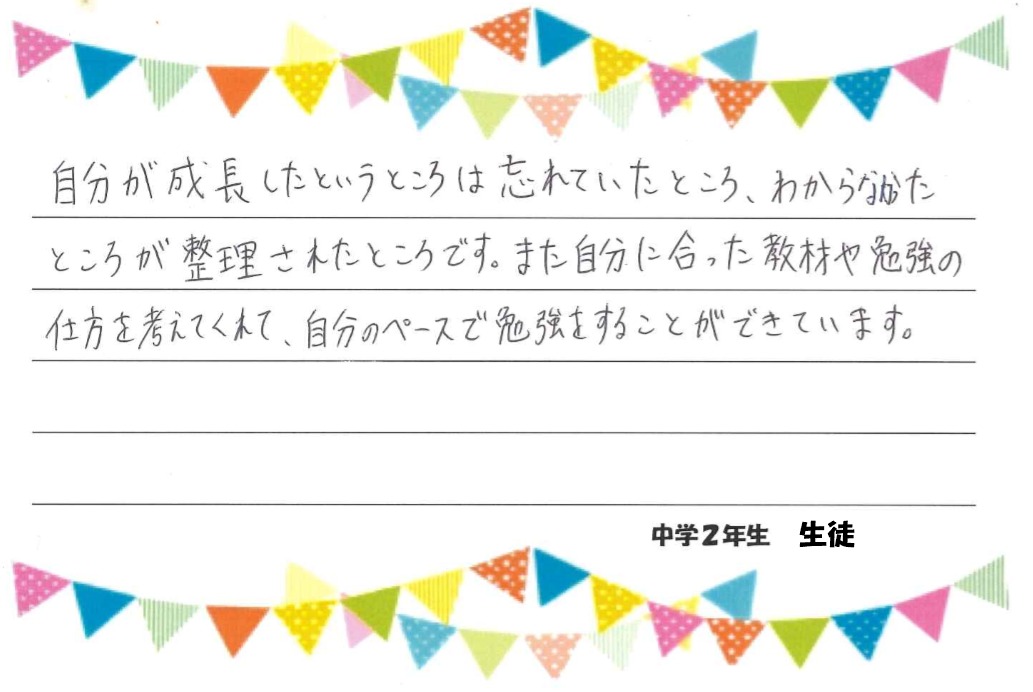 自分が成長したというところは忘れていたところ、わからなかた
ところが整理されたところです。また自分に合った教材や勉強の
仕方を考えてくれて、自分のペースで勉強をすることができています。
中学2年生 生徒